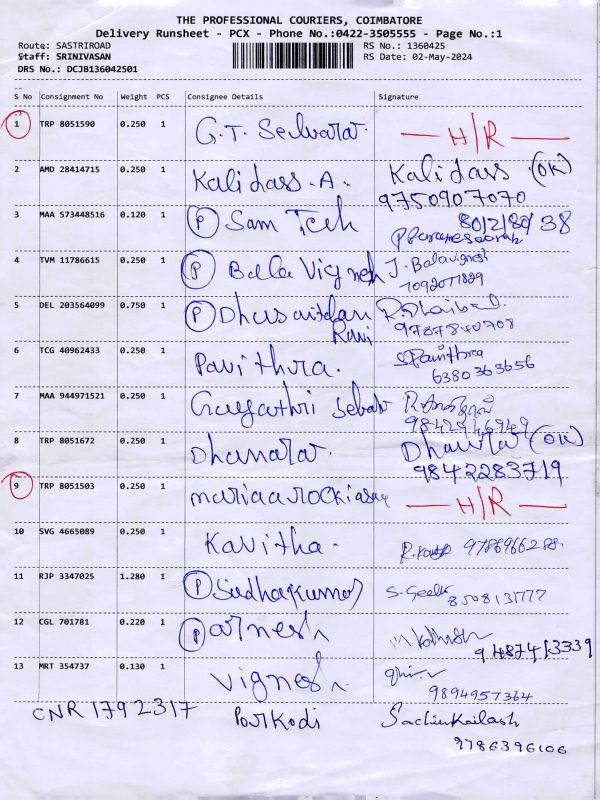 THE PROFESSIONAL COURIERS, COIMBATORE
Delivery Runsheet - PCX - Phone No.:0422-3505555 - Page No.:1
Route: SASTRIROAD RS No.: 1360425
Staff: SRINIVASAN RS Date: 02-May-2024
DRS No.: DCJB136042501
S No Consignment No Weight PCS Consignee Details Signature
1 TRP 8051590 0.250 1 G.T. Selvaraj. H/R
2 AMD 28414715 0.250 1 Kalidass.A. Kalidass (OK)
9750907070
3 MAA 573448516 0.120 1 (P) Sam Tech 80/2/80/38
4 TVM 11786615 0.250 1 (P) Balla Vignesh J. Balavignesh
7092077829
5 DEL 203564099 0.750 1 (P)
Ravi 9787840708
6 TCG 40962433 0.250 1 Pavithra. S Pavithra
6380363656
7 MAA 944971521 0.250 1 Gayathri
9842946949
8 TRP 8051672 0.250 1 Dhanaraj. (OK)
9842283719
9 TRP 8051503 0.250 1 H/R
10 SVG 4665089 0.250 1 Kavitha. 9786966288
11 RJP 3347025 1.280 1 (P) Sudhakumar S. Geetha
8508131777
12 CGL 701781 0.220 1 (P)
9487413339
13 MRT 354737 0.130 1 Vignesh.
9894957364
CNR 1792317 Porkodi Sachin Kailash
9786396106